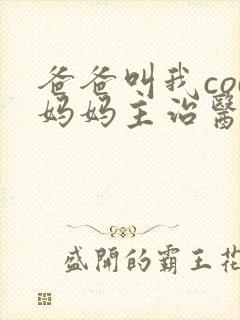 爸爸叫我co
妈妈主治醫
盛開的霸王花